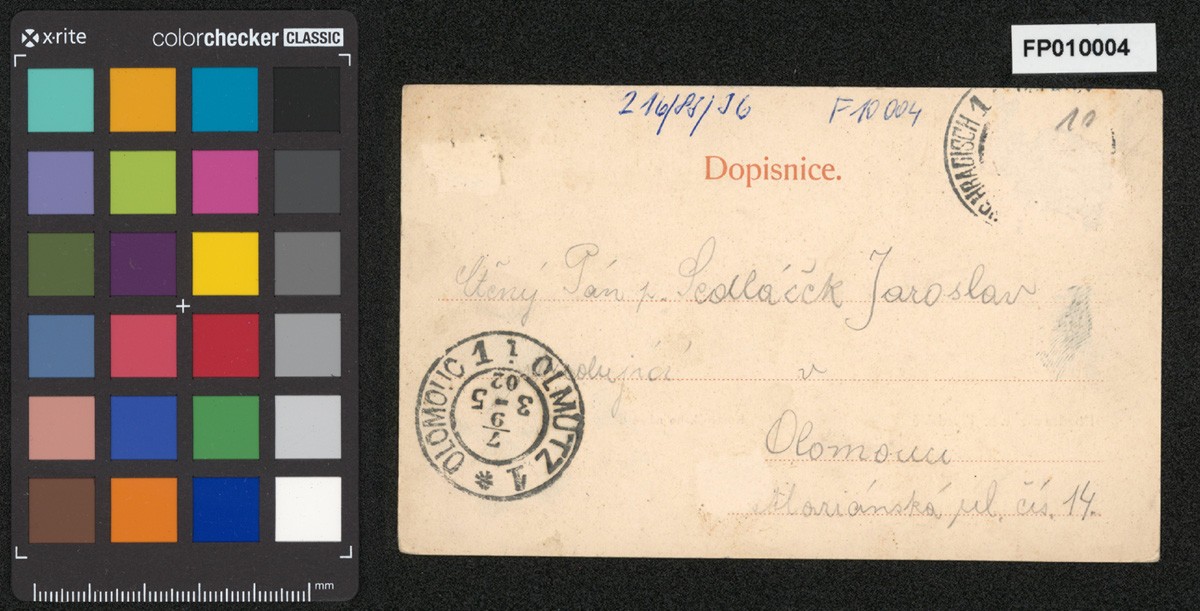 x·rite colorchecker CLASSIC
FP010004
216/85/96 F10004
10
HRADISCH 1
Dopisnice.
Ctěný Pán p. Sedláčěk Jaroslav
v
Olomouci
Mariánská ul. čís. 14.
OLOMOUC 1 1 OLMÜTZ 1
7
9
3-5
02
mm